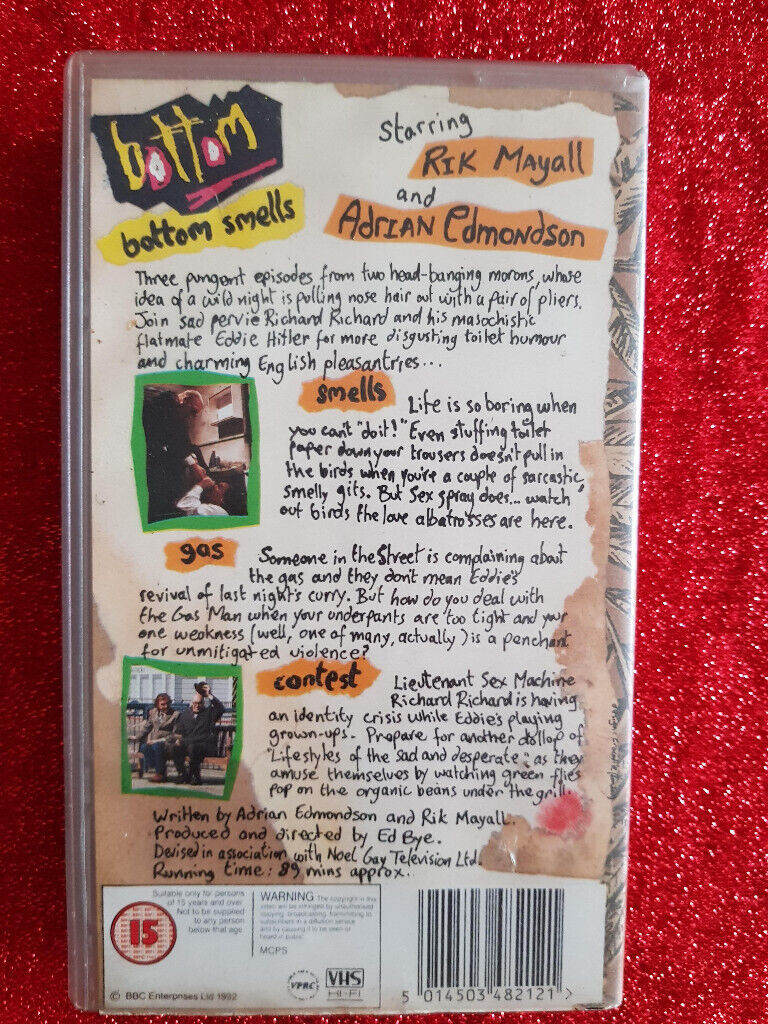 bottom
bottom smells
starring
RIK MAyall
and
ADRIAN Edmondson
Three pungent episodes from two head-banging morons, whose
idea of a wild night is pulling nose hair out with a pair of pliers.
Join sad pervie Richard Richard and his masochistic
flatmate Eddie Hitler for more disgusting toilet humour
and charming English pleasantries...
smells
Life is so boring when
you can't "do it!" Even stuffing toilet
paper down your trousers doesn't pull in
the birds when you're a couple of sarcastic
smelly gits. But Sex spray does... watch
out birds the love albatrosses are here.
gas
Someone in the Street is complaining about
the gas and they don't mean Eddie's
revival of last night's curry. But how do you deal with
the Gas Man when your underpants are too tight and your
one weakness (well, one of many, actually) is a penchant
for unmitigated violence?
contest
Lieutenant Sex Machine
Richard Richard is having
an identity crisis while Eddie's playing
grown-ups. Prepare for another dollop of
"Lifestyles of the sad and desperate" as they
amuse themselves by watching green flies
pop on the organic beans under the grill.
Written by Adrian Edmondson and Rik Mayall.
Produced and directed by Ed Bye.
Devised in association with Noel Gay Television Ltd.
Running time: 89 mins approx.
Suitable only for persons
of 15 years and over
Not to be supplied
to any person
below that age
15
WARNING The copyright in this
video will be infringed by unauthorised
copying, broadcasting, transmitting to
subscribers in a diffusion service
and by causing it to be seen or
heard in public
MCPS
VPRC
VHS
HI-FI
© BBC Enterprises Ltd 1992
5 014503 482121 >